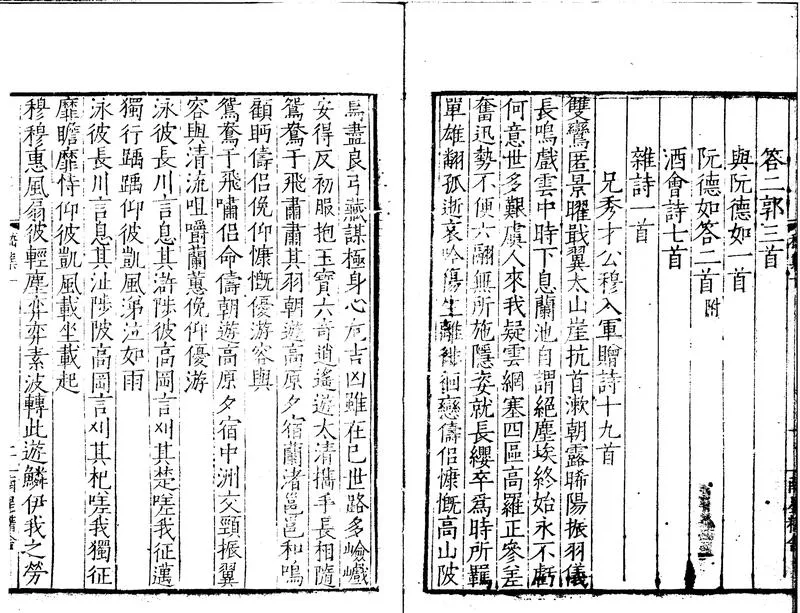 答二郭三首
與阮德如一首
阮德如答二首附
酒會詩七首
雜詩一首
兄秀才公穆入軍贈詩十九首
雙鸞匿景曜戢翼太山崖抗首漱朝露晞陽振羽儀
長鳴戲雲中時下息蘭池自謂絕塵埃終始永不虧
何意世多艱虞人來我疑雲網塞四區高羅正參差
奮迅勢不便六翮無所施隱姿就長纓卒為時所羈
單雄翻孤逝哀吟傷生離徘徊戀儔侶慷慨高山陂
鳥盡良弓藏謀極身心危吉凶雖在己世路多嶮巇
安得反初服抱玉寶六奇逍遙遊太清攜手長相隨
鴛鴦于飛肅肅其羽朝遊高原夕宿蘭渚邕邕和鳴
顧眄儔侶俛仰慷慨優游容與
鴛鴦于飛嘯侶命儔朝遊高原夕宿中洲交頸振翼
容與清流咀嚼蘭蕙俛仰優游
泳彼長川言息其滸陟彼高岡言刈其楚嗟我征邁
獨行踽踽仰彼凱風涕泣如雨
泳彼長川言息其沚陟彼高岡言刈其杞嗟我獨征
靡瞻靡恃仰彼凱風載坐載起
穆穆惠風扇彼輕塵弈弈素波轉此遊鱗伊我之勞